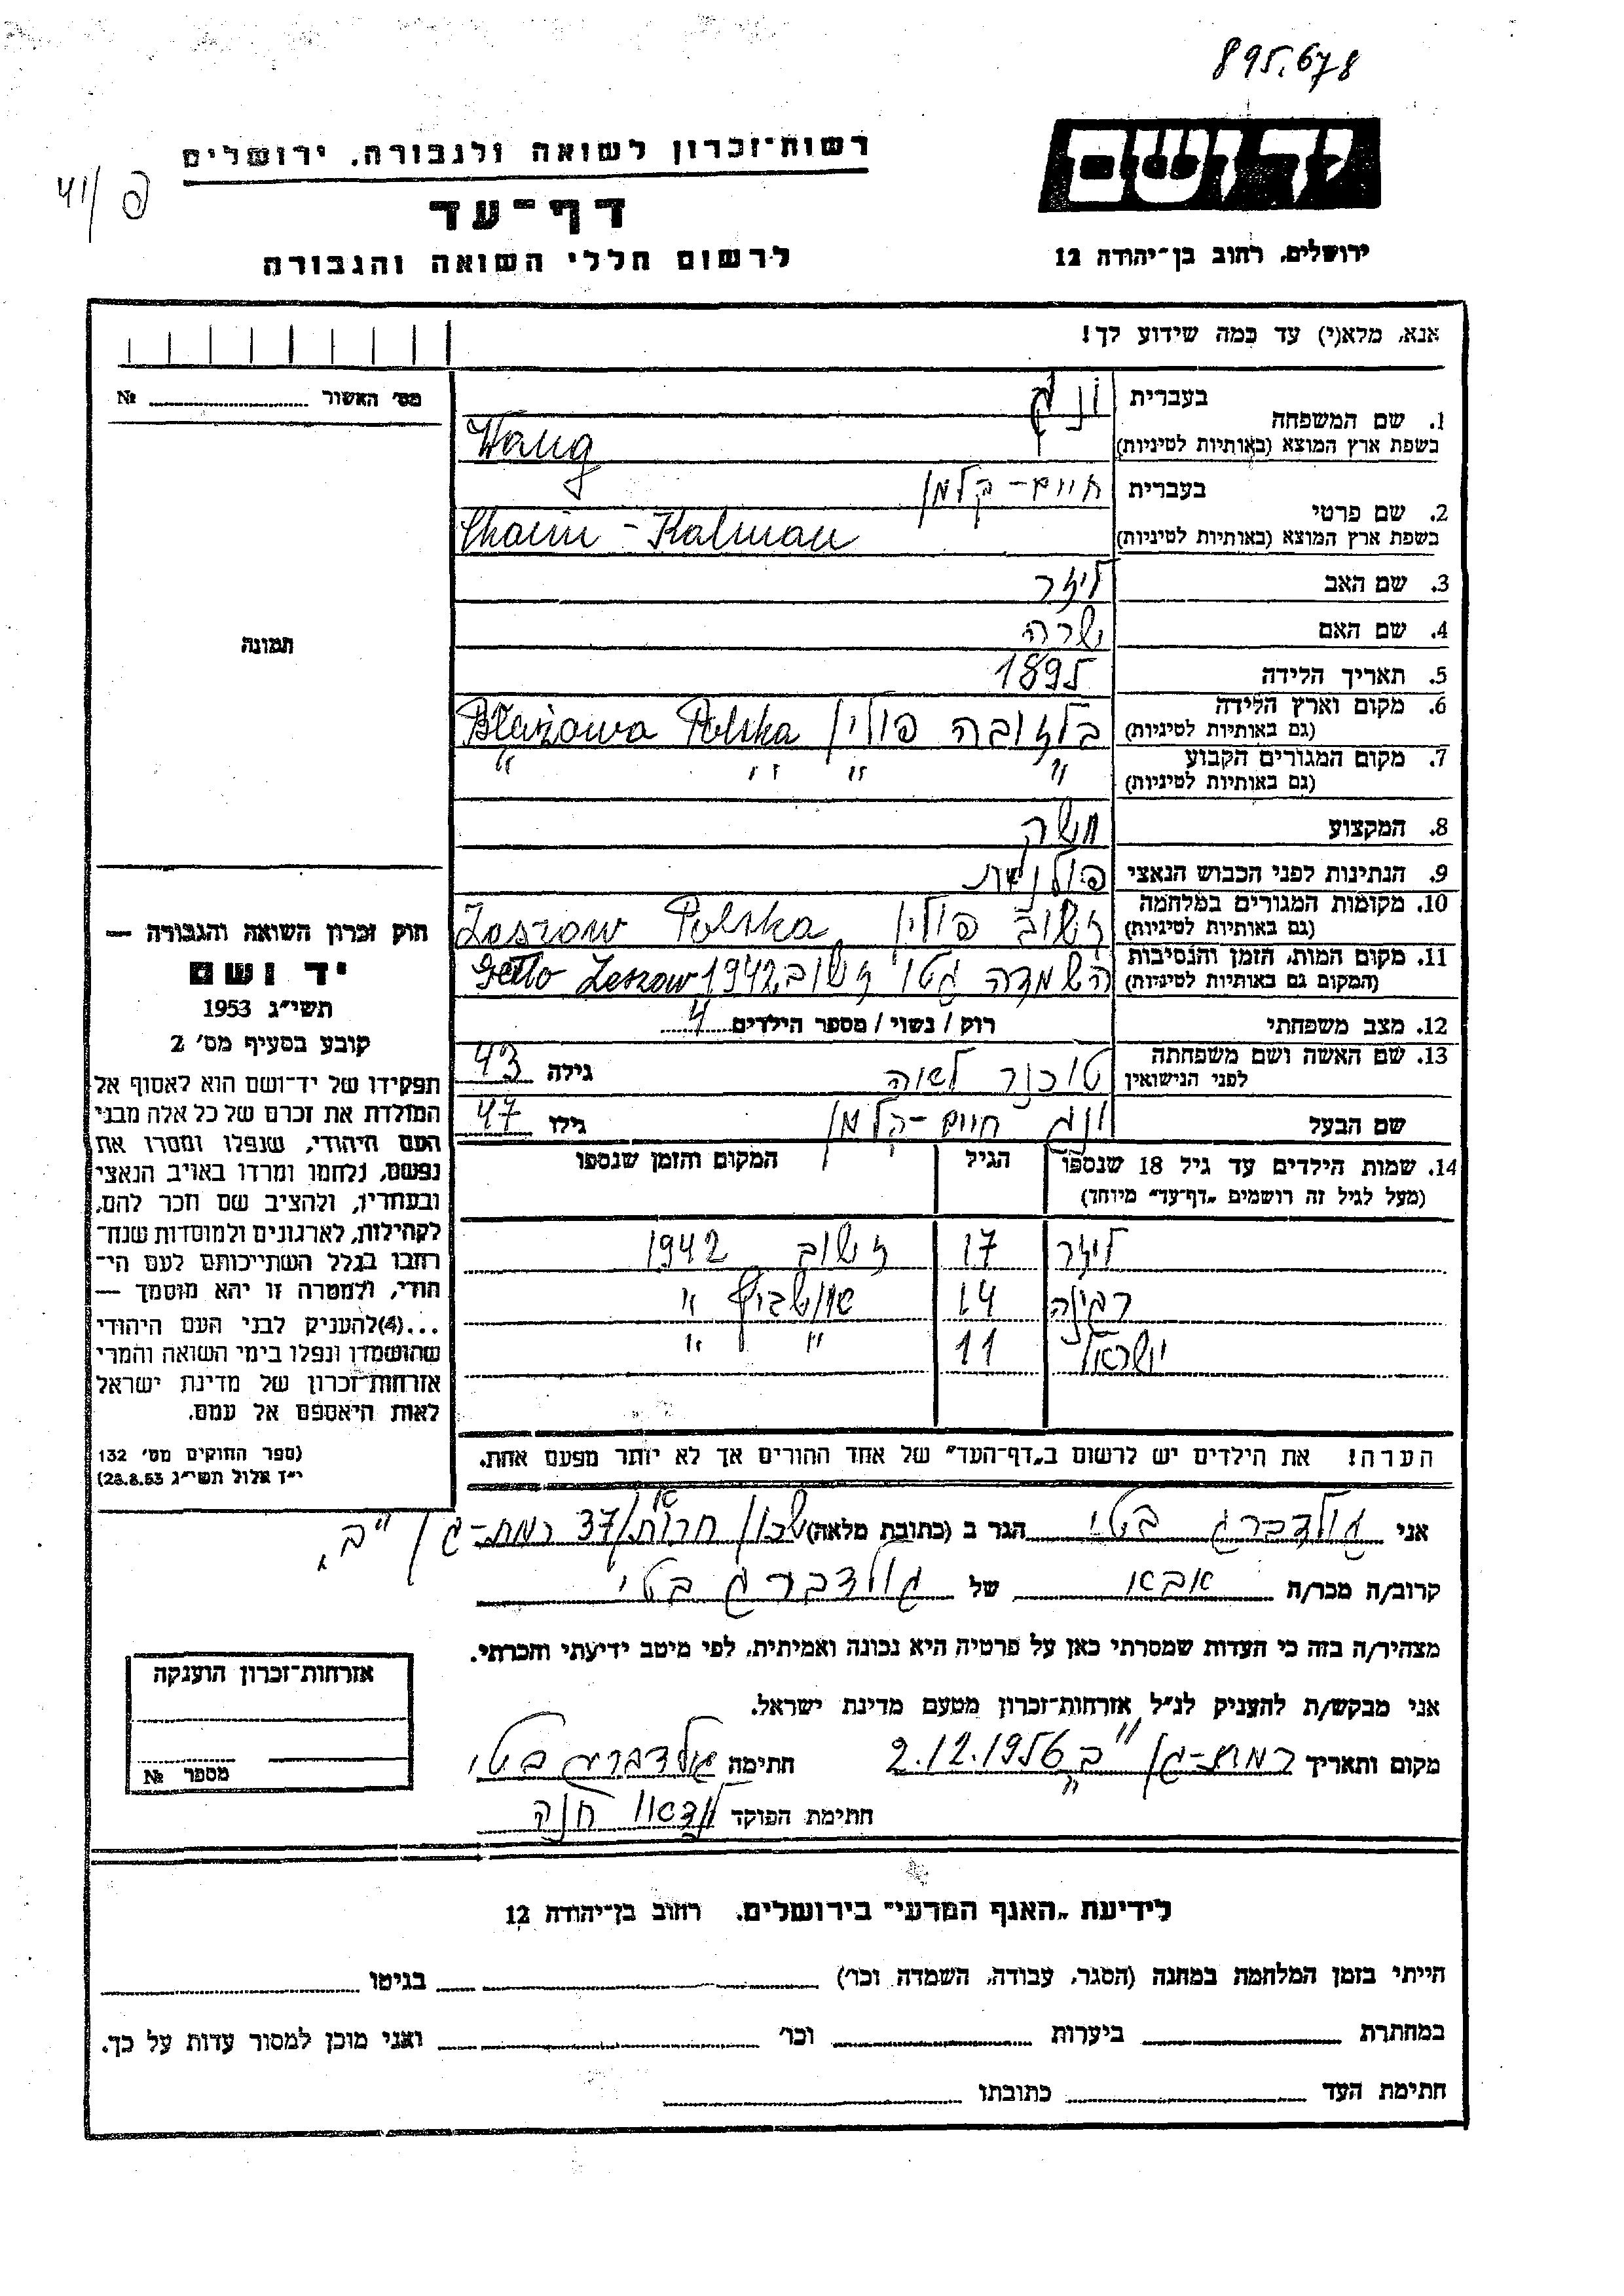 895,678
רשות־זכרון לשואה ולגבורה, ירושלים
יד ושם
41/פ
דף־עד
לרשום חללי השואה והגבורה
ירושלים, רחוב בן־יהודה 12
אנא, מלא(י) עד כמה שידוע לך!
מס׳ האשור № 
1. שם המשפחה
בעברית ונג
בשפת ארץ המוצא (באותיות לטיניות) Wang
2. שם פרטי
בעברית חיים-קלמן
בשפת ארץ המוצא (באותיות לטיניות) Chaim - Kalman
3. שם האב ליזר
4. שם האם שרה
5. תאריך הלידה 1895
6. מקום וארץ הלידה (גם באותיות לטיניות) בלזובה פולין Błażowa Polska
7. מקום המגורים הקבוע (גם באותיות לטיניות) " " " "
8. המקצוע
9. הנתינות לפני הכבוש הנאצי פולנית
10. מקומות המגורים במלחמה (גם באותיות לטיניות) ז׳שוב פולין Zeszow Polska
11. מקום המות, הזמן והנסיבות (המקום גם באותיות לטיניות) השמדה גטו ז׳שוב 1942 Getto Zeszow
12. מצב משפחתי רוק / נשוי / מספר הילדים 4
13. שם האשה ושם משפחתה לפני הנישואין טוכנר לאה גילה 43
שם הבעל ונג חיים-קלמן גילו 47
14. שמות הילדים עד גיל 18 שנספו (מעל לגיל זה רושמים „דף־עד״ מיוחד) הגיל המקום והזמן שנספו
ליזר 17 ז׳שוב 1942
רגינה 14 "
ישראל 11 " "
הערה! את הילדים יש לרשום ב„דף־העד״ של אחד ההורים אך לא יותר מפעם אחת.
תמונה
חוק זכרון השואה והגבורה —
יד ושם
תשי״ג 1953
קובע בסעיף מס׳ 2
תפקידו של יד־ושם הוא לאסוף אל
המולדת את זכרם של כל אלה מבני
העם היהודי, שנפלו ומסרו את
נפשם, נלחמו ומרדו באויב הנאצי
ובעוזריו, ולהציב שם וזכר להם,
לקהילות, לארגונים ולמוסדות שנח־
רבו בגלל השתייכותם לעם הי־
הודי, ולמטרה זו יהא מוסמך —
...(4)להעניק לבני העם היהודי
שהושמדו ונפלו בימי השואה והמרי
אזרחות־זכרון של מדינת ישראל
לאות היאספם אל עמם.
(ספר החוקים מס׳ 132
י״ז אלול תשי״ג 28.8.53)
אני גולדברג בטי הגר ב (כתובת מלאה) שכון חרות 37/ רמת-גן "ב,
קרוב/ה מכר/ה אבא של גולדברג בטי
מצהיר/ה בזה כי העדות שמסרתי כאן על פרטיה היא נכונה ואמיתית, לפי מיטב ידיעתי והכרתי.
אני מבקש/ת להעניק לנ״ל אזרחות־זכרון מטעם מדינת ישראל.
מקום ותאריך רמת-גן "ב" 2.12.1956 חתימה גולדברג בטי
חתימת הפוקד לנדאו חנה
אזרחות־זכרון הוענקה
מספר №
לידיעת „האגף המדעי״ בירושלים, רחוב בן־יהודה 12
הייתי בזמן המלחמה במחנה (הסגר, עבודה, השמדה וכו׳) בגיטו
במחתרת ביערות וכו׳ ואני מוכן למסור עדות על כך.
חתימת העד כתובתו